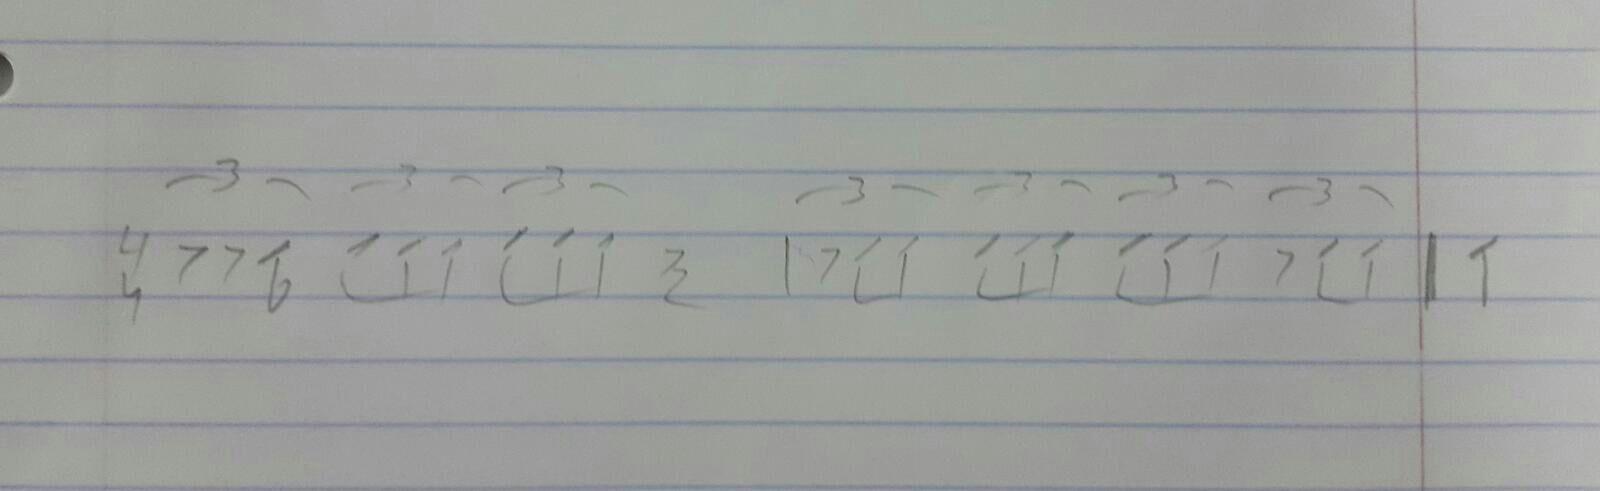 3 3 3 3 3 3 3
4
4